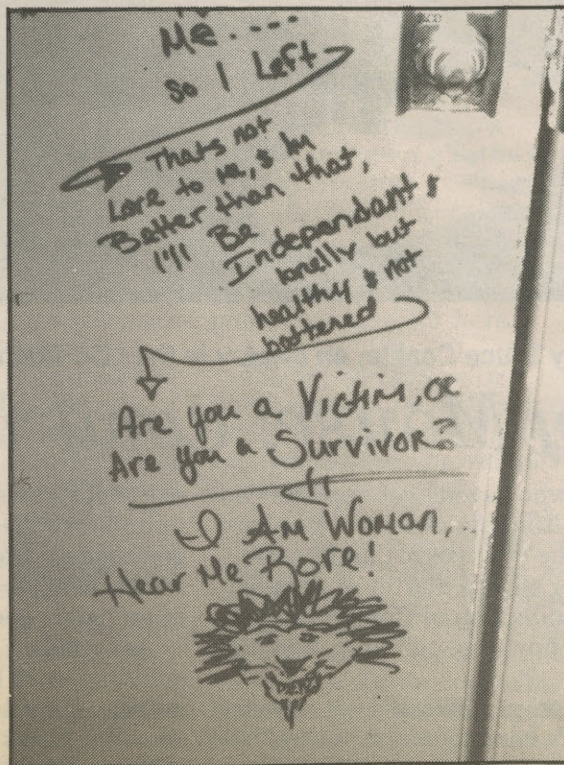 Me....
So I Left
Thats not
Love to me, & Im
Better than that,
I'll Be
Independant &
lonelly but
healthy & not
battered
Are you a Victim, or
Are you a Survivor?
I Am Woman,..
Hear Me Rore!